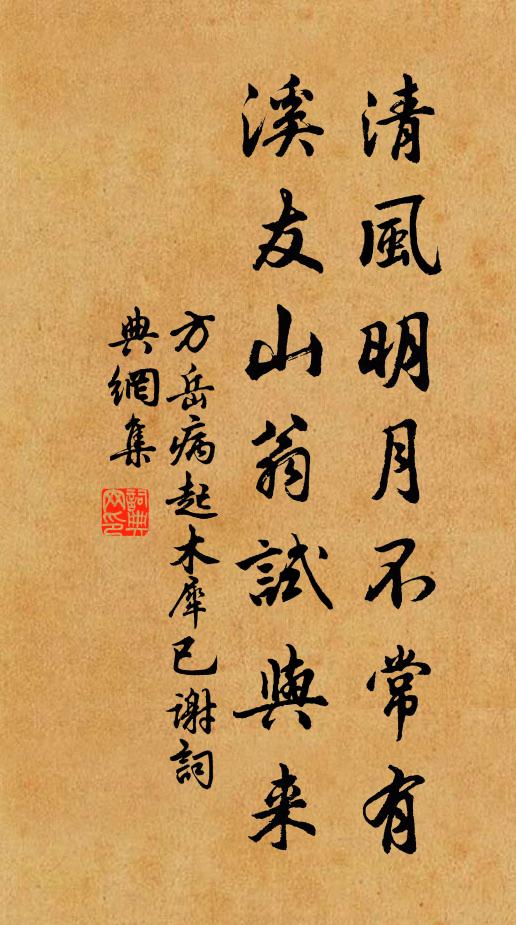 清風明月不常有
溪友山翁試與来
方岳病起木犀已謝詞
典網集
詞典
网印